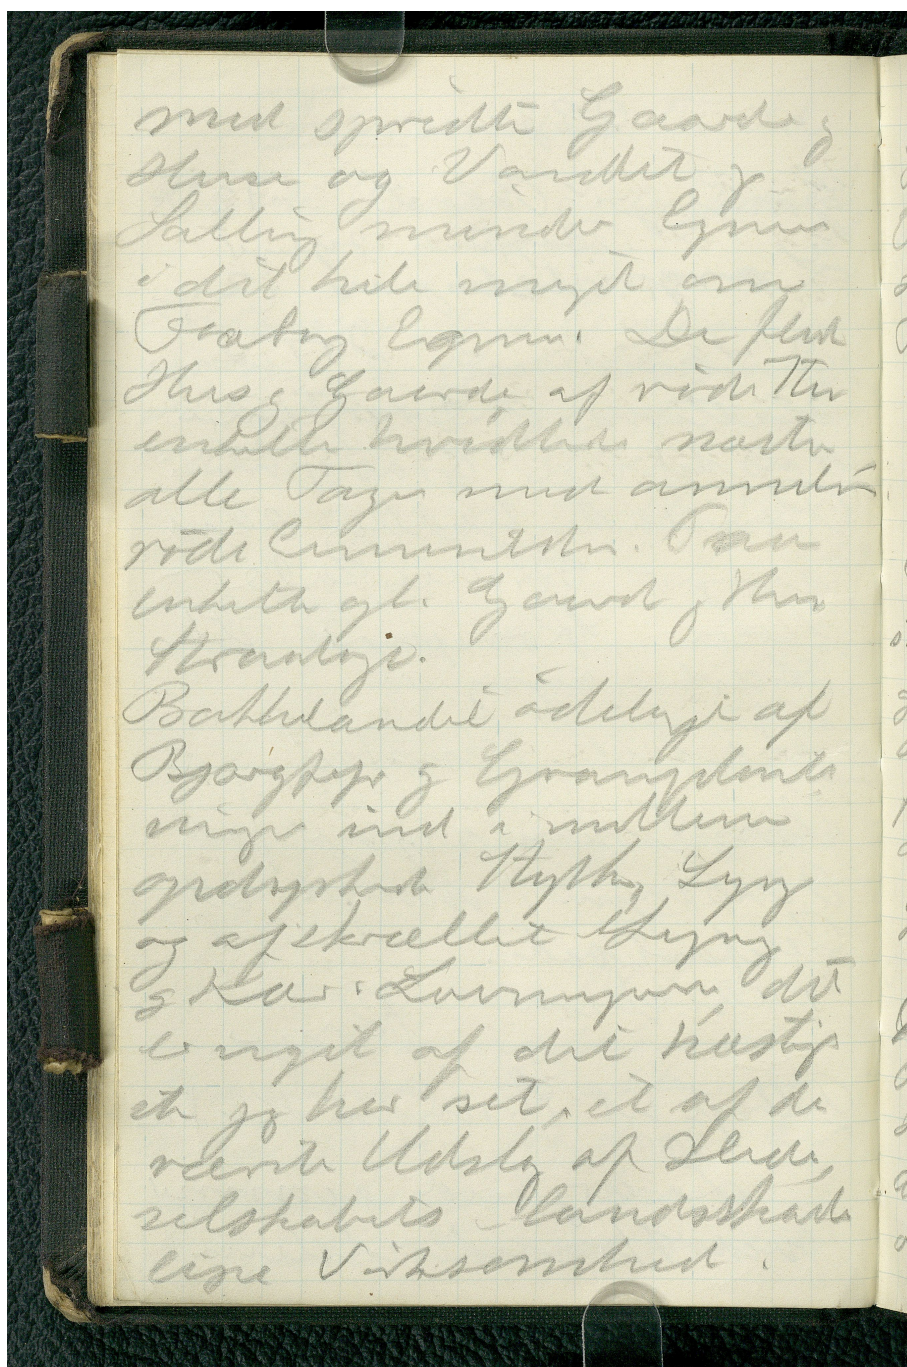 med spredte Gaarde og
Huse og Vandet og
Salling minder Egnen
i det hele meget om
Faaborg Egnen. De fleste
Huse og Gaarde af røde Sten
enkelte hvidkalkede næsten
alle Tage med
røde Cementsten. Paa
enkelte gl. Gaarde og Huse
Straatage.
Bakkelandet ödelagt af
Bjærgfyr og Granplant
ninger ind i mellem
opdyrkede Stykker Lyng
og afskrællet Lyng
og Kær. det
er noget af det hæslig
ste jeg har set, et af de
værste Udslag af Hede
selskabets landsskade
lige Virksomhed.